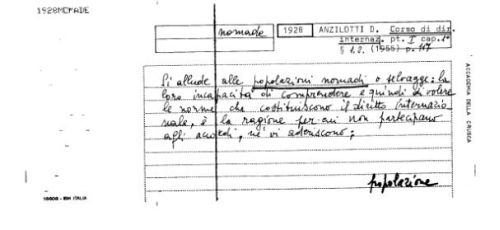 1928NOMADE
nomade
1928
ANZILOTTI D. Corso di dir.
internaz. pt. I cap. 1°
§ 1.2. (1955) p. 117
Si allude alle popolazioni nomadi o selvagge: la
loro incapacità di comprendere e quindi di volere
le norme che costituiscono il diritto internazio
nale, è la ragione per cui non partecipano
agli accordi, nè vi aderiscono;
popolazione
IBM ITALIA
ACCADEMIA DELLA CRUSCA